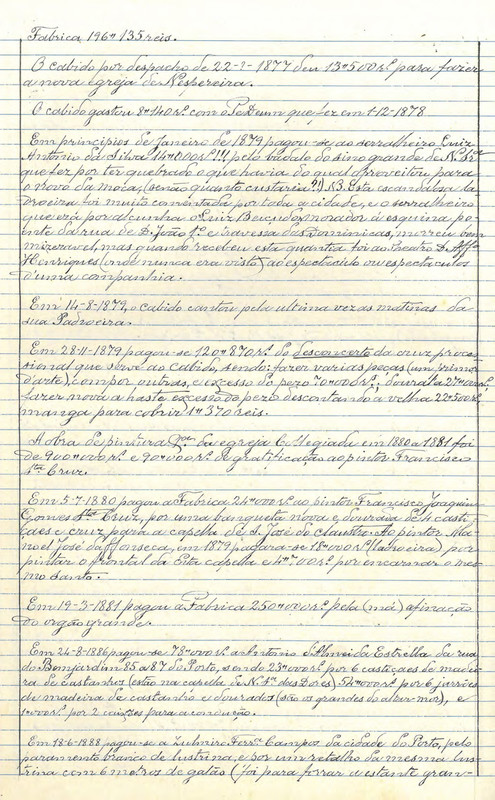 Fabrica 196$135 reis.
O cabido por despacho de 22-2-1877 deu 13$500 rs. para fazer
a nova egreja de Nespereira.
O cabido gastou 8$140 rs. com o Te Deum que fez em 1-12-1878
Em principios de Janeiro de 1879 pagou-se ao serralheiro Luiz
Antonio da Silva 14$000 rs.!!! pelo badalo do sino grande de N. Snra
que fez por ter quebrado o que havia do qual aproveitou para
o novo da moca, (senão quanto custaria?!) N.B. Esta escandalosa la-
droeira foi muito comentada por toda a cidade, e o serralheiro
que era por alcunha o Luiz Beiçudo, morador á esquina po-
ente da rua de D. João 1º e travessa das Dominicas, morreu bem
mizeravel, mas quando recebeu esta quantia foi ao theatro D. Affº
Henriques (onde nunca era visto) ao espectaculo ou espectaculos
d'uma companhia.
Em 14-8-1879, o cabido cantou pela ultima vez as matinas da
sua Padroeira.
Em 28-11-1879 pagou-se 120$870 rs. do desconcerto da cruz proces-
sional que serve ao cabido, sendo: fazer varias peças (um primor
d'arte), compor outras, e excesso do pezo 70$000 rs.; doural-a 27$000 rs.,
fazer nova a haste excesso do pezo descontando a velha 22$500 rs.
manga para cobrir 1$370 reis.
A obra de pintura da egreja Collegiada em 1880 a 1881 foi
de 900$000 rs. e 90$000 rs. de gratificação ao pintor Francisco
Sta Cruz.
Em 5-7-1880 pagou a Fabrica 24$000 rs. ao pintor Francisco Joaquim
Gomes Sta Cruz, por uma banqueta nova e dourada de 4 casti-
çaes e cruz para a capella de S. José do claustro. Ao pintor Ma-
noel José da Fonseca, em 1879 pagara-se 18$000 rs. (ladroeira), por
pintar o frontal da dita capella e 4$500 por encarnar o mes-
mo Santo.
Em 19-3-1881 pagou a Fabrica 250$000 rs. pela (má) afinação
do orgão grande.
Em 24-8-1886 pagou-se 78$000 rs. a Antonio d'Almeida Estrella da rua
do Bomjardim 85 a 87 do Porto, sendo 23$000 rs. por 6 castiçaes de madei-
ra de castanho (estão na capella de N. Sra das Dores) 54$000 rs. por 6 jarrões
de madeira de castanho e dourados (são os grandes do altar-mór), e
1$000 rs. por 2 caixões para a condução.
Em 18-6-1888 pagou-se a Zulmiro Ferra Campos da cidade do Porto, pelo
paramento branco de lustrina, e por um retalho da mesma lus-
trina com 6 metros de galão (foi para forrar a estante gran-